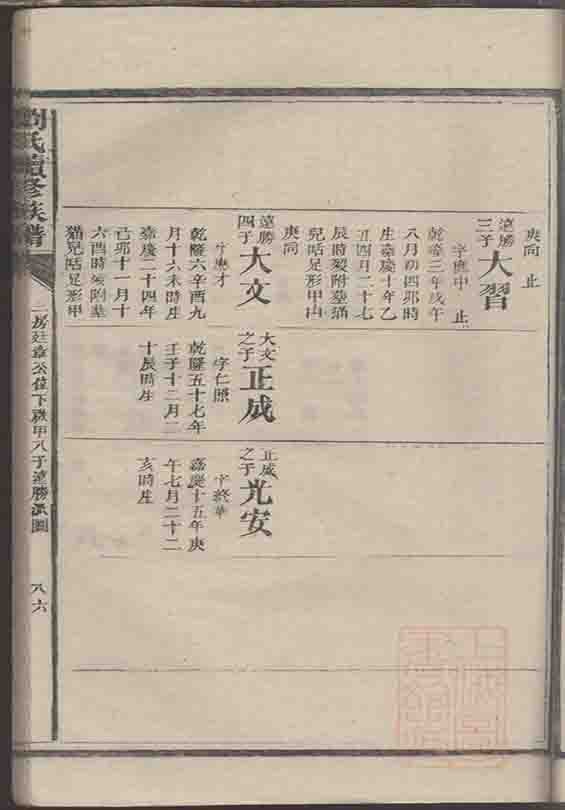 庚向 止
達勝
三子
大習
字應中 止
乾隆三年戊午
八月初四卯時
生嘉慶十年乙
丑四月二十七
辰時歿附葬滿
兒咶足形甲山
庚向
達勝
四子
大文
字應才
乾隆六辛酉九
月十六未時生
嘉慶二十四年
己卯十一月十
六酉時歿附葬
猫兒咶足形甲
大文
之子
正成
字仁照
乾隆五十七年
壬子十二月二
十辰時生
正成
之子
光安
字終華
嘉慶十五年庚
午七月二十二
亥時生
劉氏續修族譜
二房廷章公位下職甲八子達勝派圖
八六